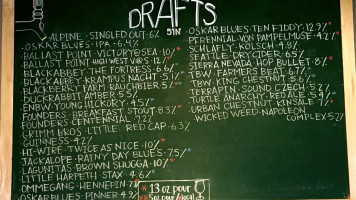 DRAFTS
51N
ALPINE - SINGLED OUT - 6%
OSKAR BLUES - IPA - 6.4%
BALLAST POINT - VICTORY@SEA - 10%*
BALLAST POINT HIGH WEST V@S - 12%*
BLACKABBEY THE FORTRESS - 6.6%
BLACK ABBEY KRAMPUS NACHT 5.1%*
BLACKBERRY FARM RAUCHBIER 5%
DUCKRABBIT AMBER 5.5%
ENBW YOUNG HICKORY - 4.5%
FOUNDERS BREAKFAST STOUT 8.3%*
FOUNDERS CENTENNIAL 7.2%
GRIMM BROS - LITTLE RED CAP - 6.3%
GUINNESS - 4.2%
HI-WIRE - TWICE AS NICE - 10%*
JACKALOPE - RAINY DAY BLUES - 7.5%*
LAGUNITAS BROWN SHUGGA - 10%*
LITTLE HARPETH STAX - 4.6%
OMMEGANG HENNEPIN - 7.
OSKAR BLUES - PINNER - 4.9
OSKAR BLUES - TEN FIDDY - 12.9%*
PERENNIAL - VON PAMPELMUSE - 4.2%*
SCHLAFLY - KOLSCH - 4.8%
SEATTLE - DRY CIDER - 6.5%
SIERRA NEVADA - HOP BULLET - 8%*
TBW - FARMERS BEAT - 6.7%
TBW - KING CHESTNUT - 5.6%
TERRAPIN - SOUND CZECH - 5%
TURTLE ANARCHY - RED ALE - 5.4%
URBAN CHESTNUT - KINSALE 7%
WICKED WEED - NAPOLEON
COMPLEX 5.2%
* 13 oz pour